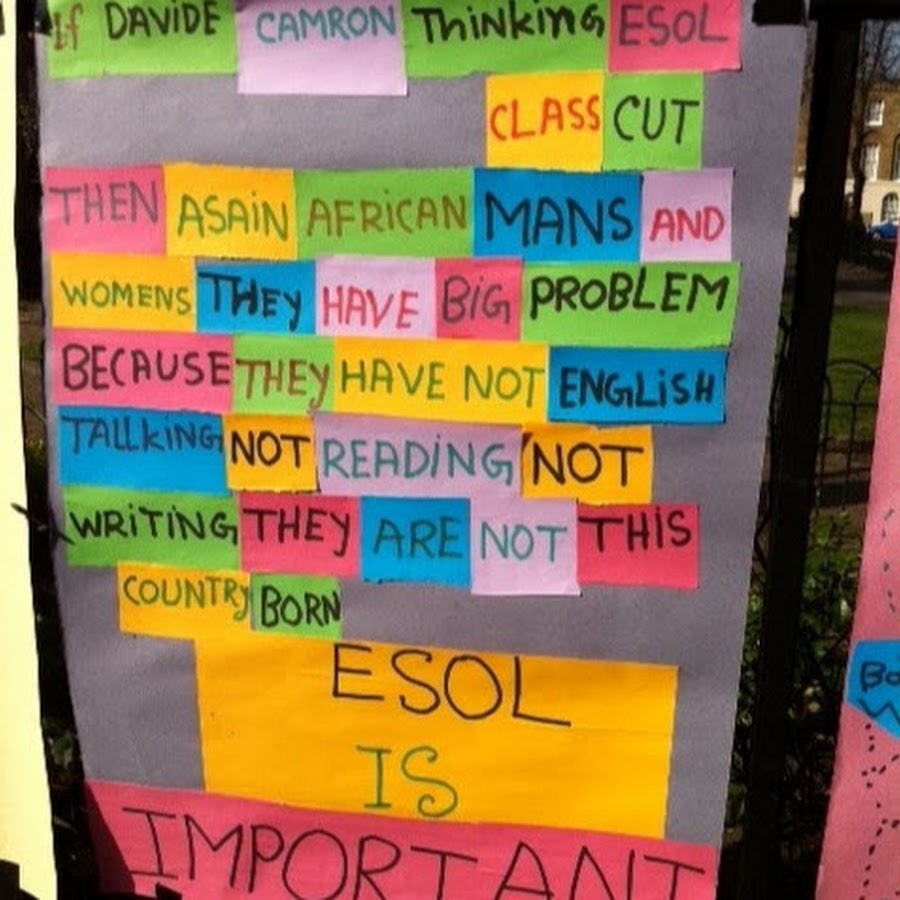 If DAVIDE CAMRON Thinking ESOL
CLASS CUT
THEN ASAIN AFRICAN MANS AND
WOMENS THEY HAVE BIG PROBLEM
BECAUSE THEY HAVE NOT ENGLISH
TALLKING NOT READING NOT
WRITING THEY ARE NOT THIS
COUNTRY BORN
ESOL
IS
IMPORTANT